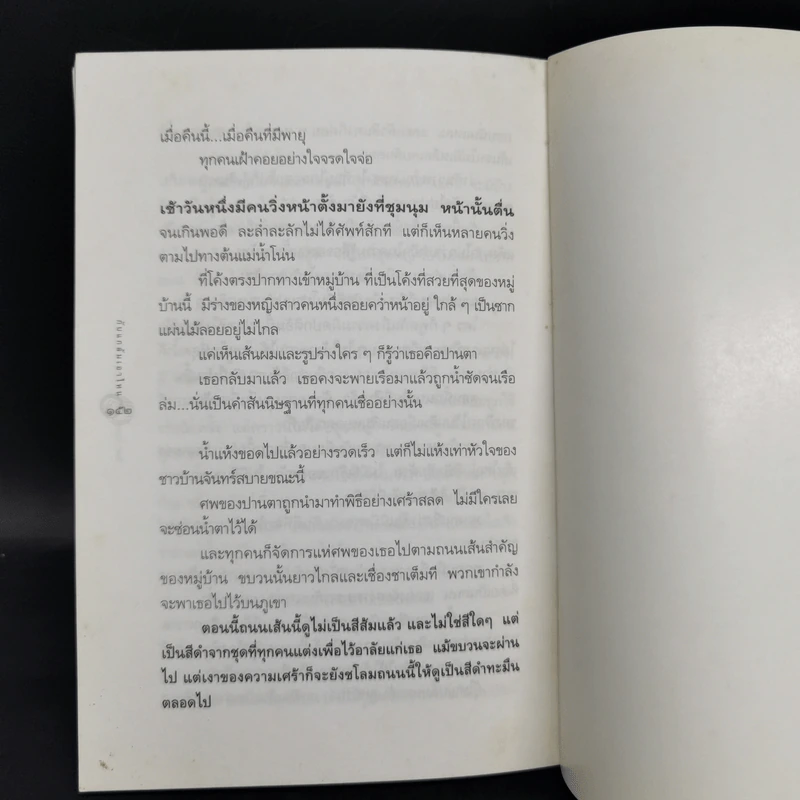 เมื่อคืนนี้...เมื่อคืนที่มีพายุ
ทุกคนเฝ้าคอยอย่างใจจรดใจจ่อ
เช้าวันหนึ่งมีคนวิ่งหน้าตั้งมายังที่ชุมนุม หน้านั้นตื่น
จนเกินพอดี ละล่ำละลักไม่ได้ศัพท์สักที แต่ก็เห็นหลายคนวิ่ง
ตามไปทางต้นแม่น้ำโน่น
ที่โค้งตรงปากทางเข้าหมู่บ้าน ที่เป็นโค้งที่สวยที่สุดของหมู่
บ้านนี้ มีร่างของหญิงสาวคนหนึ่งลอยคว่ำหน้าอยู่ ใกล้ ๆ เป็นซาก
แผ่นไม้ลอยอยู่ไม่ไกล
แค่เห็นเส้นผมและรูปร่างใคร ๆ ก็รู้ว่าเธอคือปานตา
เธอกลับมาแล้ว เธอคงจะพายเรือมาแล้วถูกน้ำซัดจนเรือ
ล่ม...นั่นเป็นคำสันนิษฐานที่ทุกคนเชื่ออย่างนั้น
น้ำแห้งขอดไปแล้วอย่างรวดเร็ว แต่ก็ไม่แห้งเท่าหัวใจของ
ชาวบ้านจันทร์สบายขณะนี้
ศพของปานตาถูกนำมาทำพิธีอย่างเศร้าสลด ไม่มีใครเลย
จะซ่อนน้ำตาไว้ได้
และทุกคนก็จัดการแห่ศพของเธอไปตามถนนเส้นสำคัญ
ของหมู่บ้าน ขบวนนั้นยาวไกลและเชื่องช้าเต็มที พวกเขากำลัง
จะพาเธอไปไว้บนภูเขา
ตอนนี้ถนนเส้นนี้ดูไม่เป็นสีส้มแล้ว และไม่ใช่สีใดๆ แต่
เป็นสีดำจากชุดที่ทุกคนแต่งเพื่อไว้อาลัยแก่เธอ แม้ขบวนจะผ่าน
ไป แต่เงาของความเศร้าก็จะยังชโลมถนนนี้ให้ดูเป็นสีดำทะมึน
ตลอดไป
๑๕๒